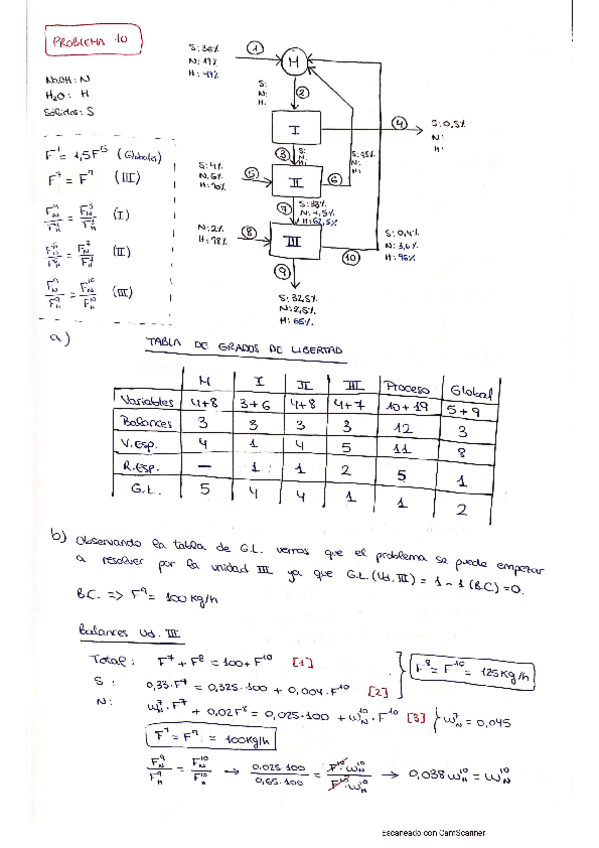 PROBLEMA 10
NH4OH: N
H2O : H
Sólidos: S
F¹ = 1,5F⁵ (Globales)
F⁷ = F⁹ (III)
(I)
(II)
(III)
S: 36%
N: 17%
H: 47%
1
M
2
S:
N:
H:
I
4
S: 0,5%
N:
H:
3
S:
N:
H:
S: 4%
N: 6%
H: 90%
5
II
6
N:
H:
7
S: 33%
N: 4,5%
H: 62,5%
N: 2%
H: 98%
8
III
S: 0,4%
N: 3,6%
H: 96%
10
9
S: 32,5%
N: 2,5%
H: 65%
a)
TABLA DE GRADOS DE LIBERTAD
M I II III Proceso Global
Variables 4+8 3+6 4+8 4+7 10+19 5+9
Balances 3 3 3 3 12 3
V. Esp. 4 1 4 5 11 8
R. Esp. — 1 1 2 5 1
G.L. 5 4 4 1 1 2
b) Observando la tabla de G.L. vemos que el problema se puede empezar
a resolver por la unidad III ya que G.L.(Ud. III) = 1 - 1 (B.C) = 0.
B.C. => F⁹ = 100 kg/h
Balances Ud. III
Total: F⁷ + F⁸ = 100 + F¹⁰ [1]
S : 0,33·F⁷ = 0,325·100 + 0,004·F¹⁰ [2]
F⁸ = F¹⁰ = 125 kg/h
N: w_N⁷·F⁷ + 0,02F⁸ = 0,025·100 + w_N¹⁰·F¹⁰ [3] } w_N⁷ = 0,045
F⁷ = F⁹ = 100kg/h
F_N⁹/F_H⁹ = F_N¹⁰/F_H¹⁰ → 0,025·100/0,65·100 = F¹⁰·w_N¹⁰/F¹⁰·w_H¹⁰ → 0,038 w_H¹⁰ = w_N¹⁰
Escaneado con CamScanner